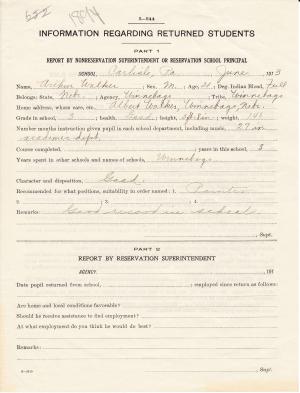 5-244
INFORMATION REGARDING RETURNED STUDENTS
PART 1
REPORT BY NONRESERVATION SUPERINTENDENT OR RESERVATION SCHOOL PRINCIPAL
SCHOOL, Carlisle, Pa. June 1913
Name, Arthur Walker; Sex, M.; Age, 21; Deg. Indian Blood, Full
Belongs: State, Nebr.; Agency, Winnebago; Tribe, Winnebago
Home address, whose care, etc., Albert Walker, Winnebago, Nebr.
Grade in school, 3; health, Good; height, ; weight,
Number months instruction given pupil in each school department, including music, 27 in
academic dept.
Course completed, ; years in this school, 3
Years spent in other schools and names of schools, Winnebago
Character and disposition, Good.
Recommended for what positions, suitability in order named: 1. Painter
2. ; 3. ; 4.
Remarks: Good record in school.
, Supt.
PART 2
REPORT BY RESERVATION SUPERINTENDENT
AGENCY, 191
Date pupil returned from school, ; employed since return as follows:
Are home and local conditions favorable?
Should he receive assistance to find employment?
At what employment do you think he would do best?
Remarks:
, Supt.